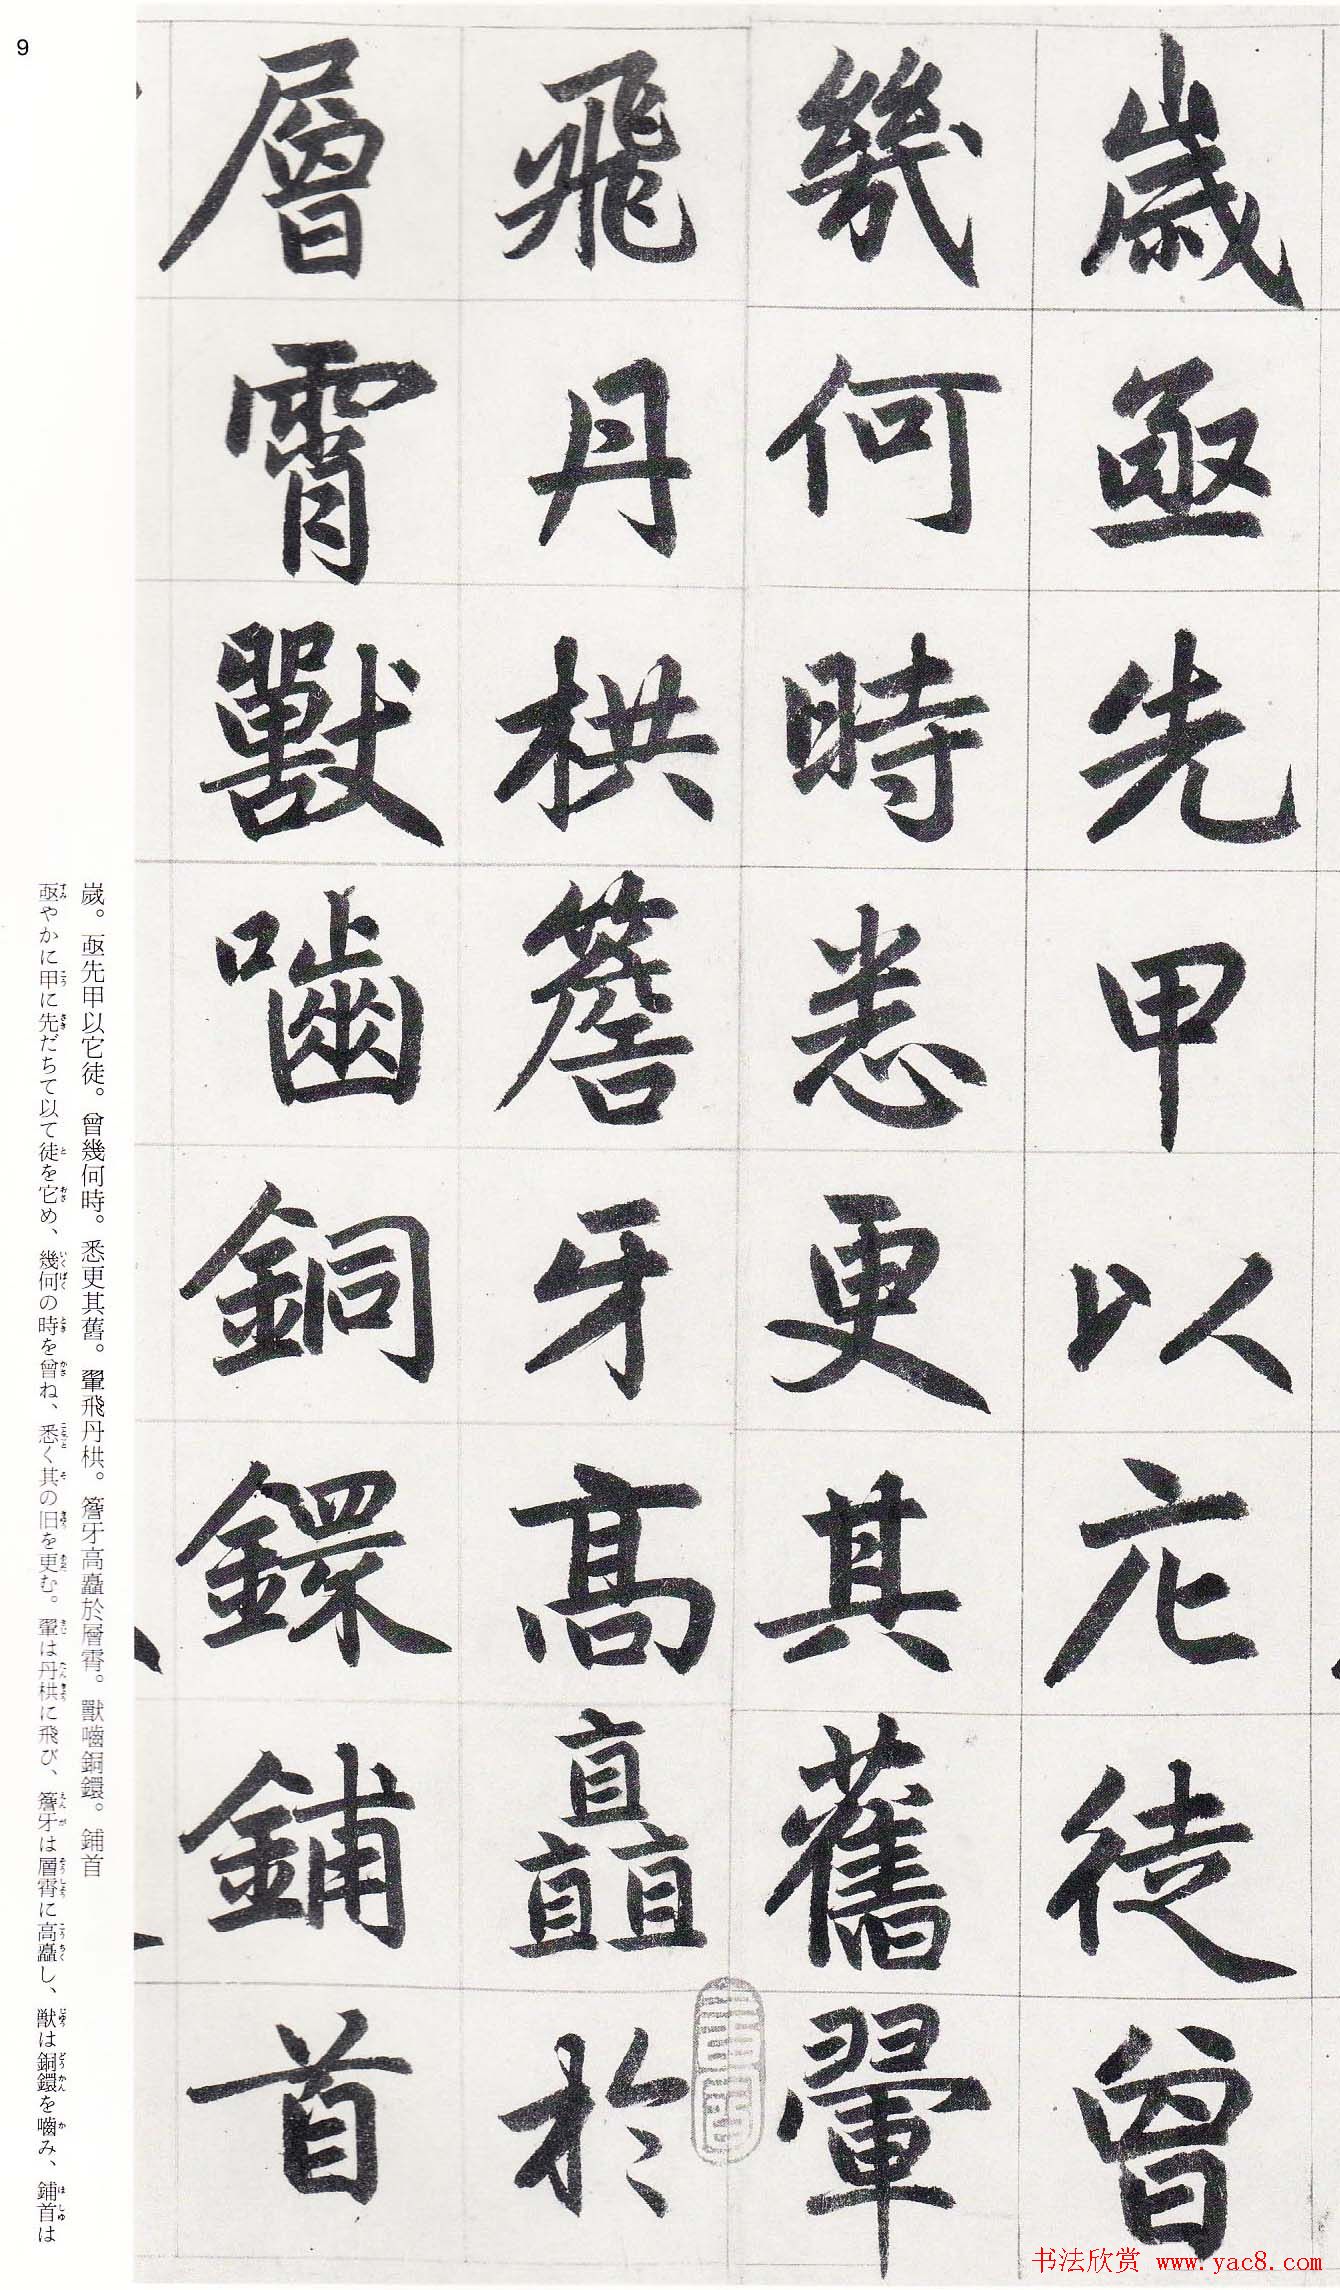 歲亟先甲以庀徒曾
幾何時悉更其舊翬
飛丹栱簷牙高矗於
層霄獸嚙銅鐶鋪首
歲。亟先甲以它徒。曾幾何時。悉更其舊。翬飛丹栱。簷牙高矗於層霄。獸嚙銅鐶。鋪首
亟やかに甲に先だちて以て徒を它め、幾何の時を曾ね、悉く其の旧を更む。翬は丹栱に飛び、簷牙は層霄に高矗し、獣は銅鐶を嚙み、鋪首は
9
书法欣赏 www.yac8.com